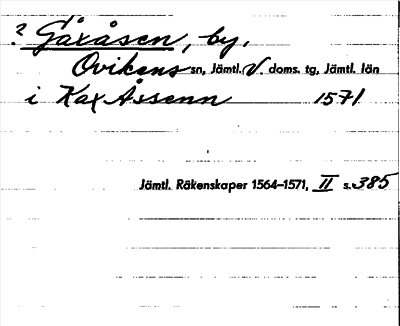 ? Gåxåsen, by.
Ovikens sn, Jämtl. V. doms. tg, Jämtl. län
i Kax Åssenn 1571
Jämtl. Räkenskaper 1564–1571, II s. 385